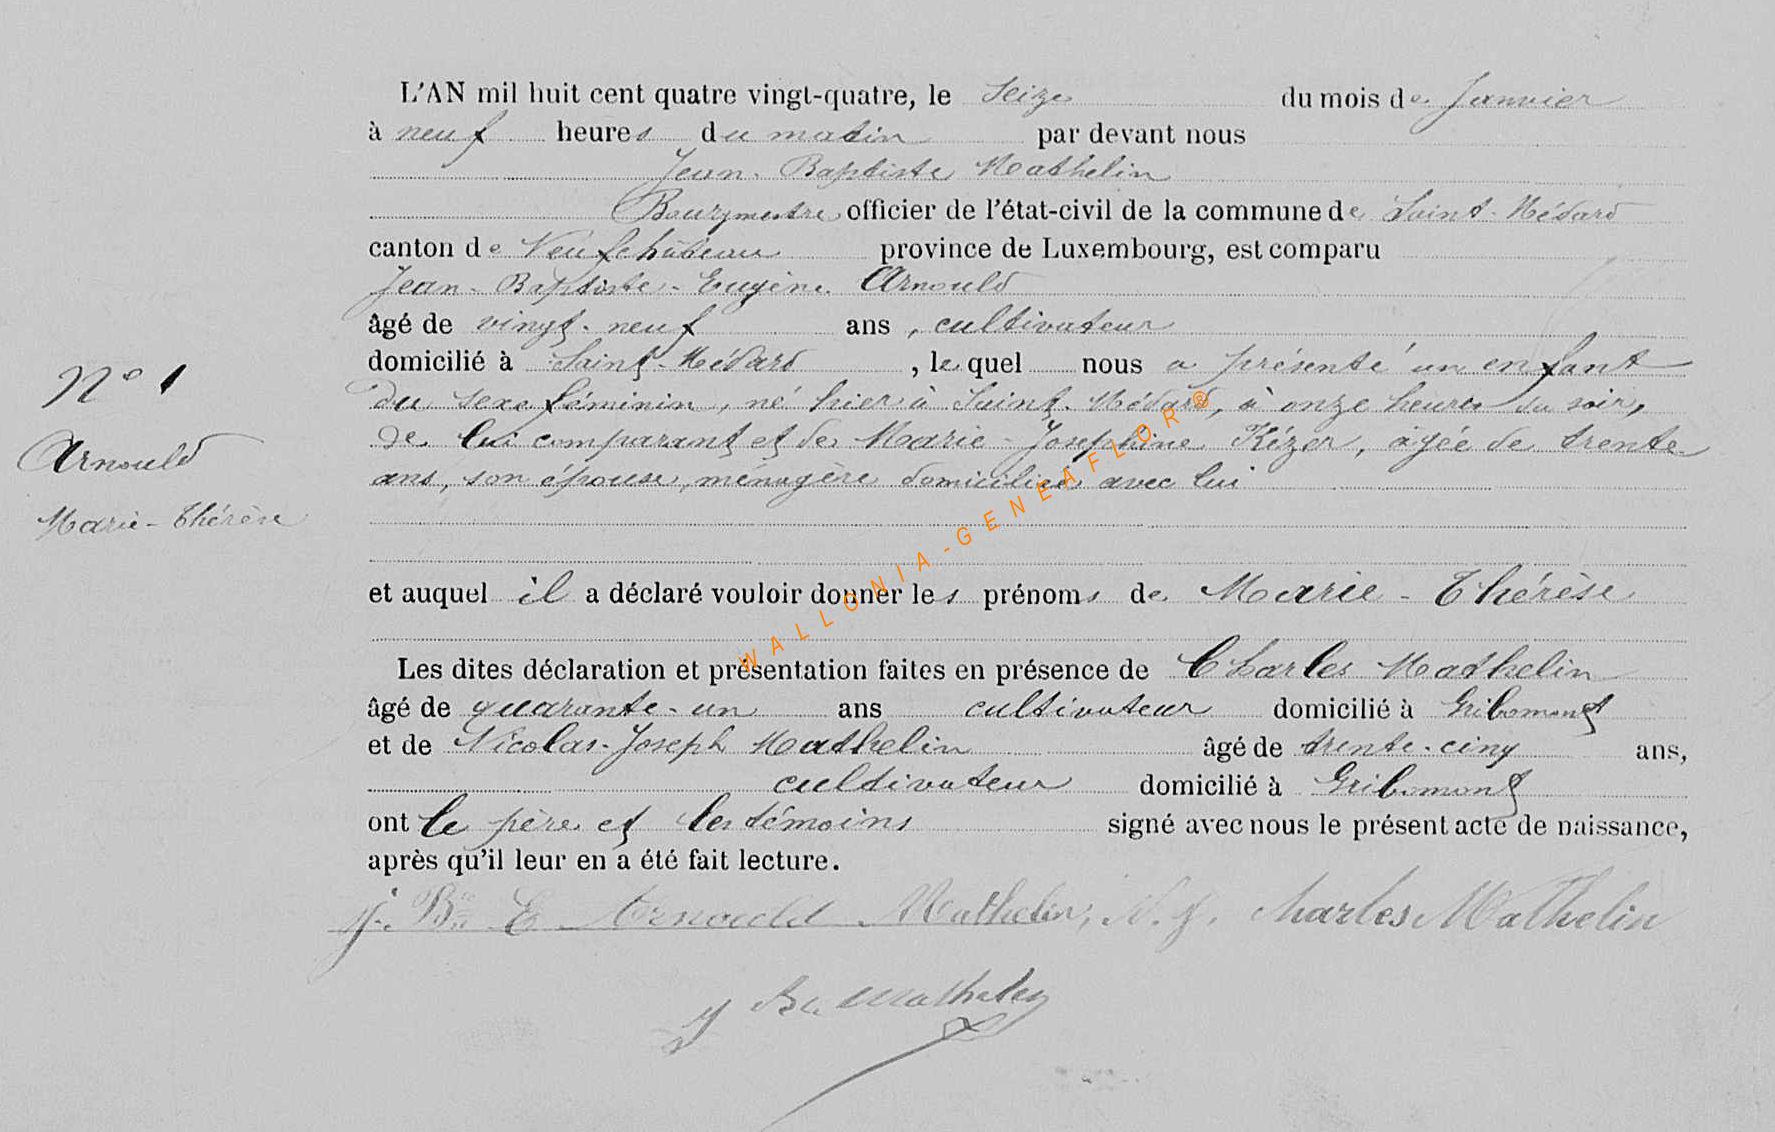 L'AN mil huit cent quatre vingt-quatre, le Seize du mois de Janvier
à neuf heures du matin par devant nous
Jean-Baptiste Mathelin
Bourgmestre officier de l'état-civil de la commune de Saint-Médard
canton de Neufchâteau province de Luxembourg, est comparu
Jean-Baptiste-Eugène Arnould
âgé de vingt-neuf ans, cultivateur
domicilié à Saint-Médard, lequel nous a présenté un enfant
du sexe féminin, né hier à Saint-Médard, à onze heures du soir,
de lui comparant et de Marie-Josephine Kézer, âgée de trente
ans, son épouse, ménagère domiciliée avec lui
et auquel il a déclaré vouloir donner les prénoms de Marie-Thérèse
Les dites déclaration et présentation faites en présence de Charles Mathelin
âgé de quarante-un ans cultivateur domicilié à Gribomont
et de Nicolas-Joseph Mathelin âgé de trente-cinq ans,
cultivateur domicilié à Gribomont
ont le père et les témoins signé avec nous le présent acte de naissance,
après qu'il leur en a été fait lecture.
N° 1
Arnould
Marie-Thérèse
J. Bte E Arnould Mathelin, N. J. Charles Mathelin
J Bte Mathelin
WALLONIA-GENEAFLOR®